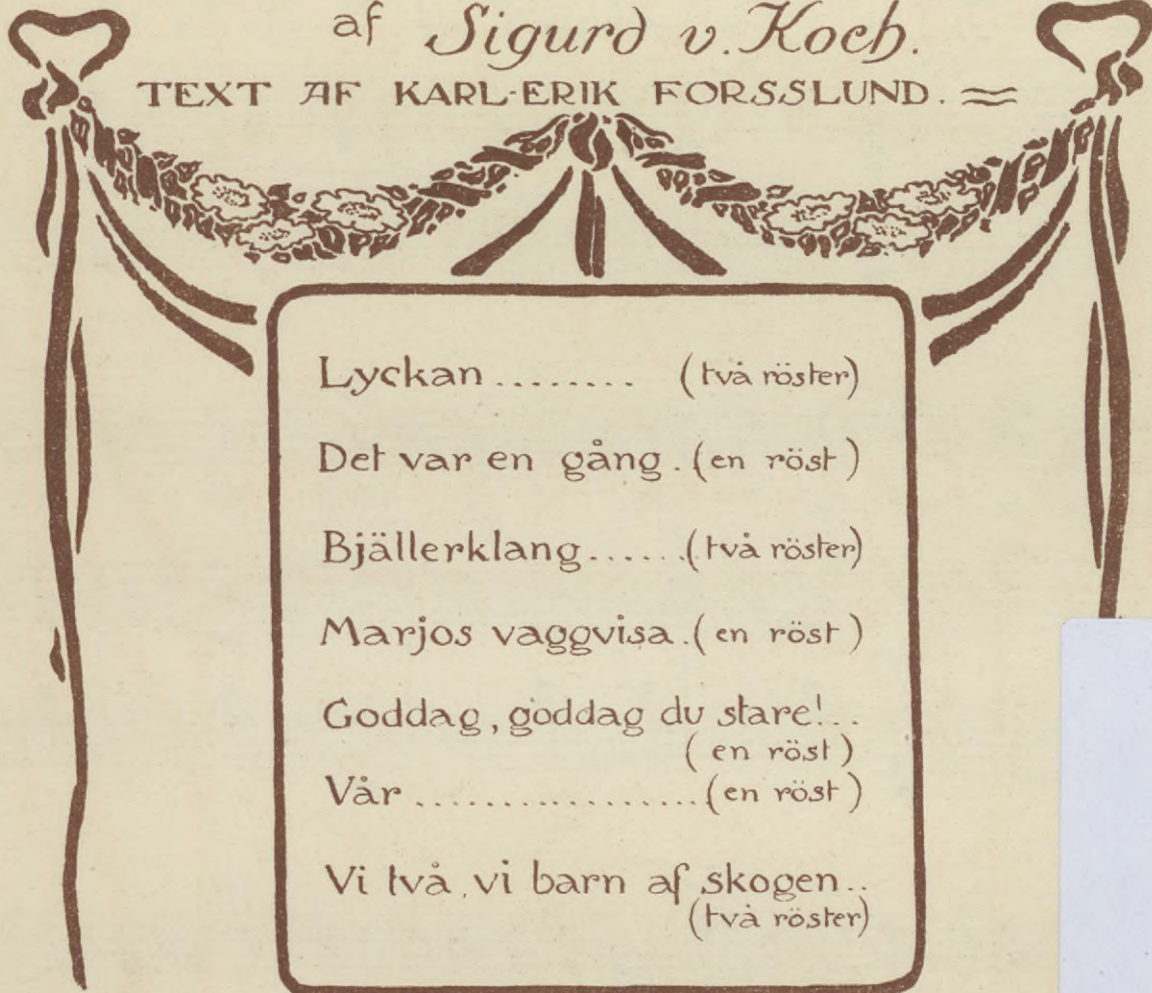 af Sigurd v. Koch.
TEXT AF KARL-ERIK FORSSLUND.
Lyckan ........ (två röster)
Det var en gång . (en röst)
Bjällerklang ...... (två röster)
Marjos vaggvisa . (en röst)
Goddag, goddag du stare! ..
(en röst)
Vår .................. (en röst)
Vi två, vi barn af skogen ..
(två röster)